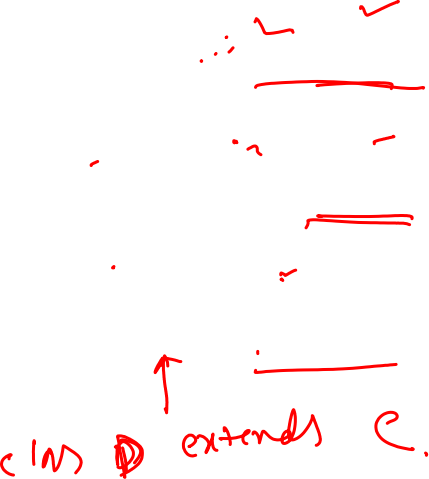 class D extends C.